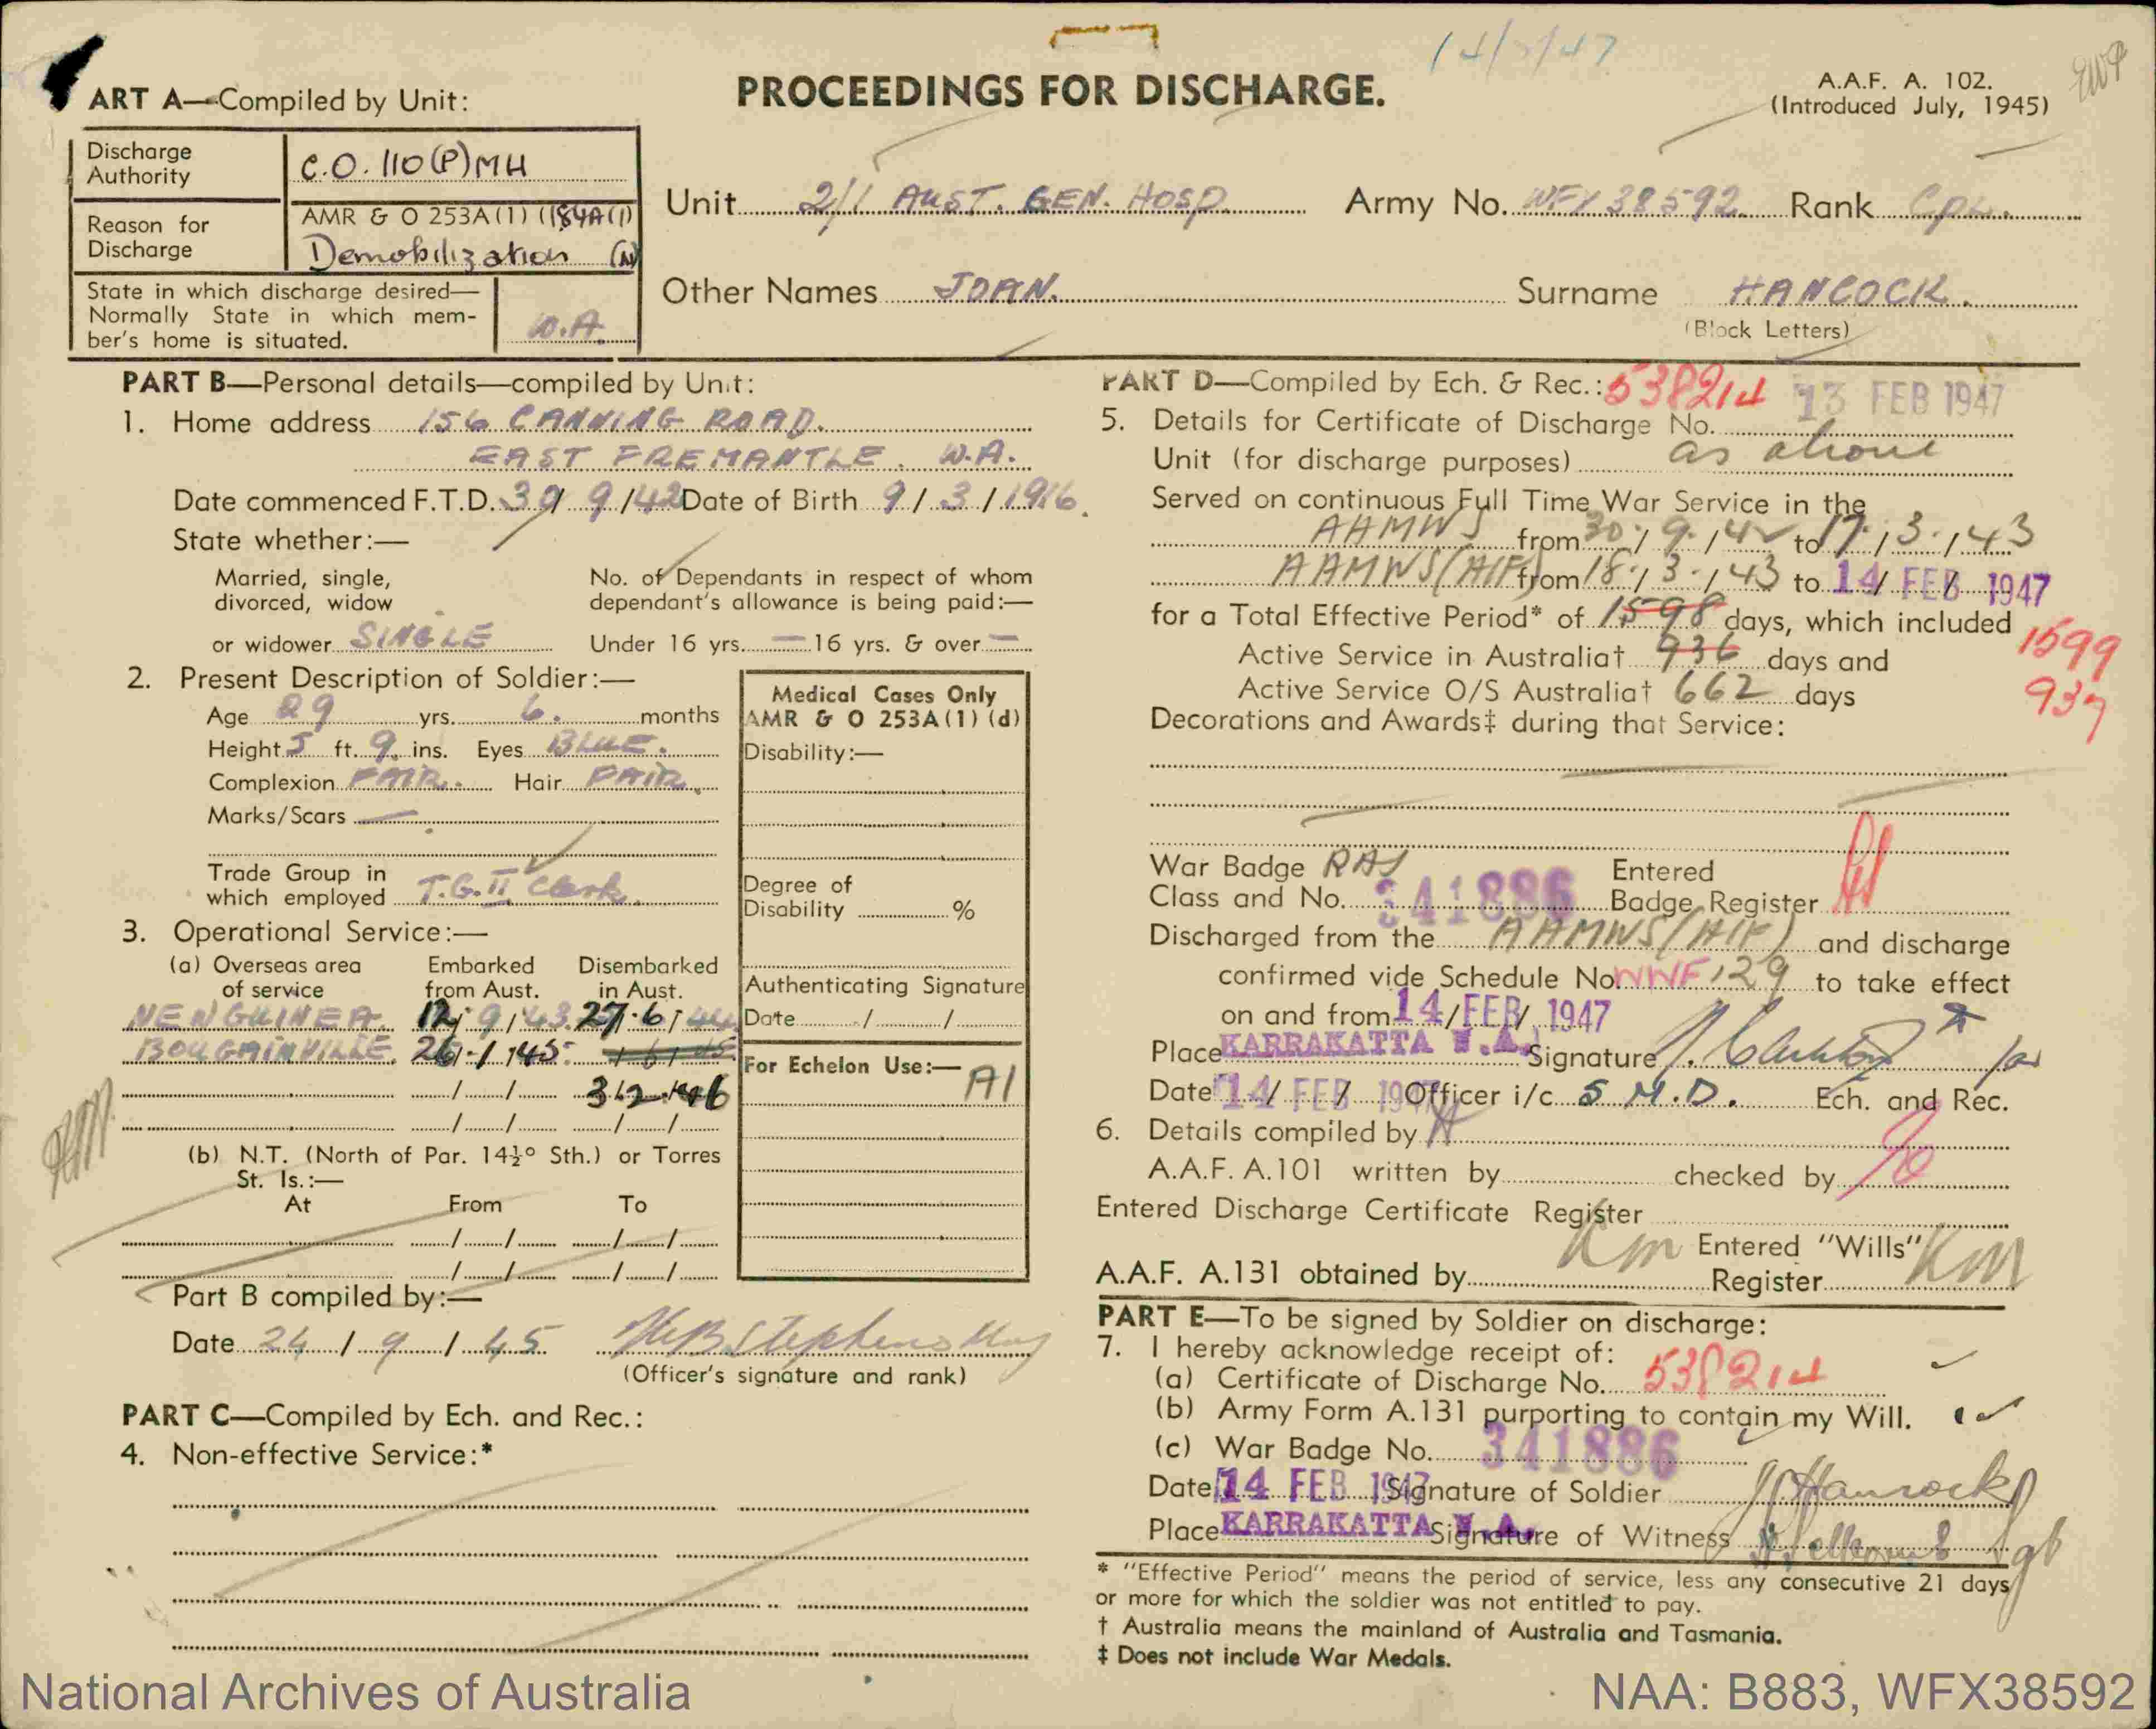 14/2/47
ART A—Compiled by Unit:
PROCEEDINGS FOR DISCHARGE.
A.A.F. A. 102.
(Introduced July, 1945)
Discharge Authority C.O. 110(P)MH
Reason for Discharge AMR & O 253A(1) (184A(1)
Demobilization (N)
State in which discharge desired—
Normally State in which mem-
ber's home is situated. W.A.
Unit 2/1 AUST. GEN. HOSP. Army No. WFX38592 Rank Cpl.
Other Names JOAN. Surname HANCOCK.
(Block Letters)
PART B—Personal details—compiled by Unit:
1. Home address 156 CANNING ROAD.
EAST FREMANTLE. W.A.
Date commenced F.T.D. 30/9/42 Date of Birth 9/3/1916.
State whether:—
Married, single,
divorced, widow
or widower SINGLE
No. of Dependants in respect of whom
dependant's allowance is being paid:—
Under 16 yrs. — 16 yrs. & over —
2. Present Description of Soldier:—
Age 29 yrs. 6. months
Height 5 ft. 9 ins. Eyes BLUE.
Complexion FAIR. Hair FAIR.
Marks/Scars —
Trade Group in
which employed T.G. II Clerk.
Medical Cases Only
AMR & O 253A(1) (d)
Disability:—
Degree of
Disability %
Authenticating Signature
Date / /
For Echelon Use:—
A1
3. Operational Service:—
(a) Overseas area
of service
Embarked
from Aust.
Disembarked
in Aust.
NEW GUINEA. 12/9/43. 27.6/44
BOUGAINVILLE. 26/1/45
/ / 3/2/46
/ / / /
(b) N.T. (North of Par. 14½° Sth.) or Torres
St. Is.:—
At From To
/ / / /
/ / / /
Part B compiled by:—
Date 24/9/45 Stephens Maj
(Officer's signature and rank)
PART C—Compiled by Ech. and Rec.:
4. Non-effective Service:*
PART D—Compiled by Ech. & Rec.: 538214 13 FEB 1947
5. Details for Certificate of Discharge No.
Unit (for discharge purposes) as above
Served on continuous Full Time War Service in the
AAMWS from 30/9/42 to 17/3/43
AAMWS (AIF) from 18/3/43 to 14/FEB/1947
for a Total Effective Period* of 1598 days, which included 1599
Active Service in Australia† 936 days and
Active Service O/S Australia† 662 days 937
Decorations and Awards‡ during that Service:
War Badge RAS
Class and No. 341886
Entered
Badge Register
Discharged from the AAMWS (AIF) and discharge
confirmed vide Schedule No. WWF 129 to take effect
on and from 14/FEB/1947
Place KARRAKATTA W.A. Signature for
Date 14/FEB/1947 Officer i/c 5 M.D. Ech. and Rec.
6. Details compiled by
A.A.F. A.101 written by checked by
Entered Discharge Certificate Register
Km Entered "Wills" KM
A.A.F. A.131 obtained by Register
PART E—To be signed by Soldier on discharge:
7. I hereby acknowledge receipt of:
(a) Certificate of Discharge No. 538214
(b) Army Form A.131 purporting to contain my Will.
(c) War Badge No. 341886
Date 14 FEB 1947 Signature of Soldier J Hancock
Place KARRAKATTA W.A. Signature of Witness Sgt
* "Effective Period" means the period of service, less any consecutive 21 days
or more for which the soldier was not entitled to pay.
† Australia means the mainland of Australia and Tasmania.
‡ Does not include War Medals.
National Archives of Australia
NAA: B883, WFX38592